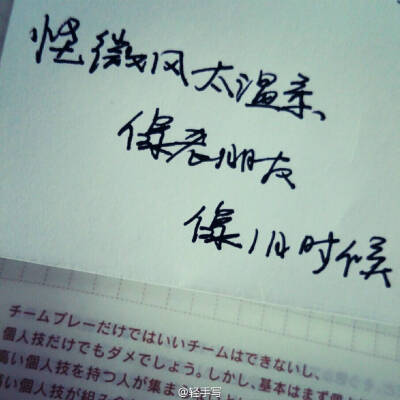 怪微风太温柔
像老朋友
像小时候
チームプレーだけではいいチームはできないし、
個人技だけでもダメでしょう。しかし、基本はまず
高い個人技を持つ人が集ま
高い個人技が組み
@轻手写